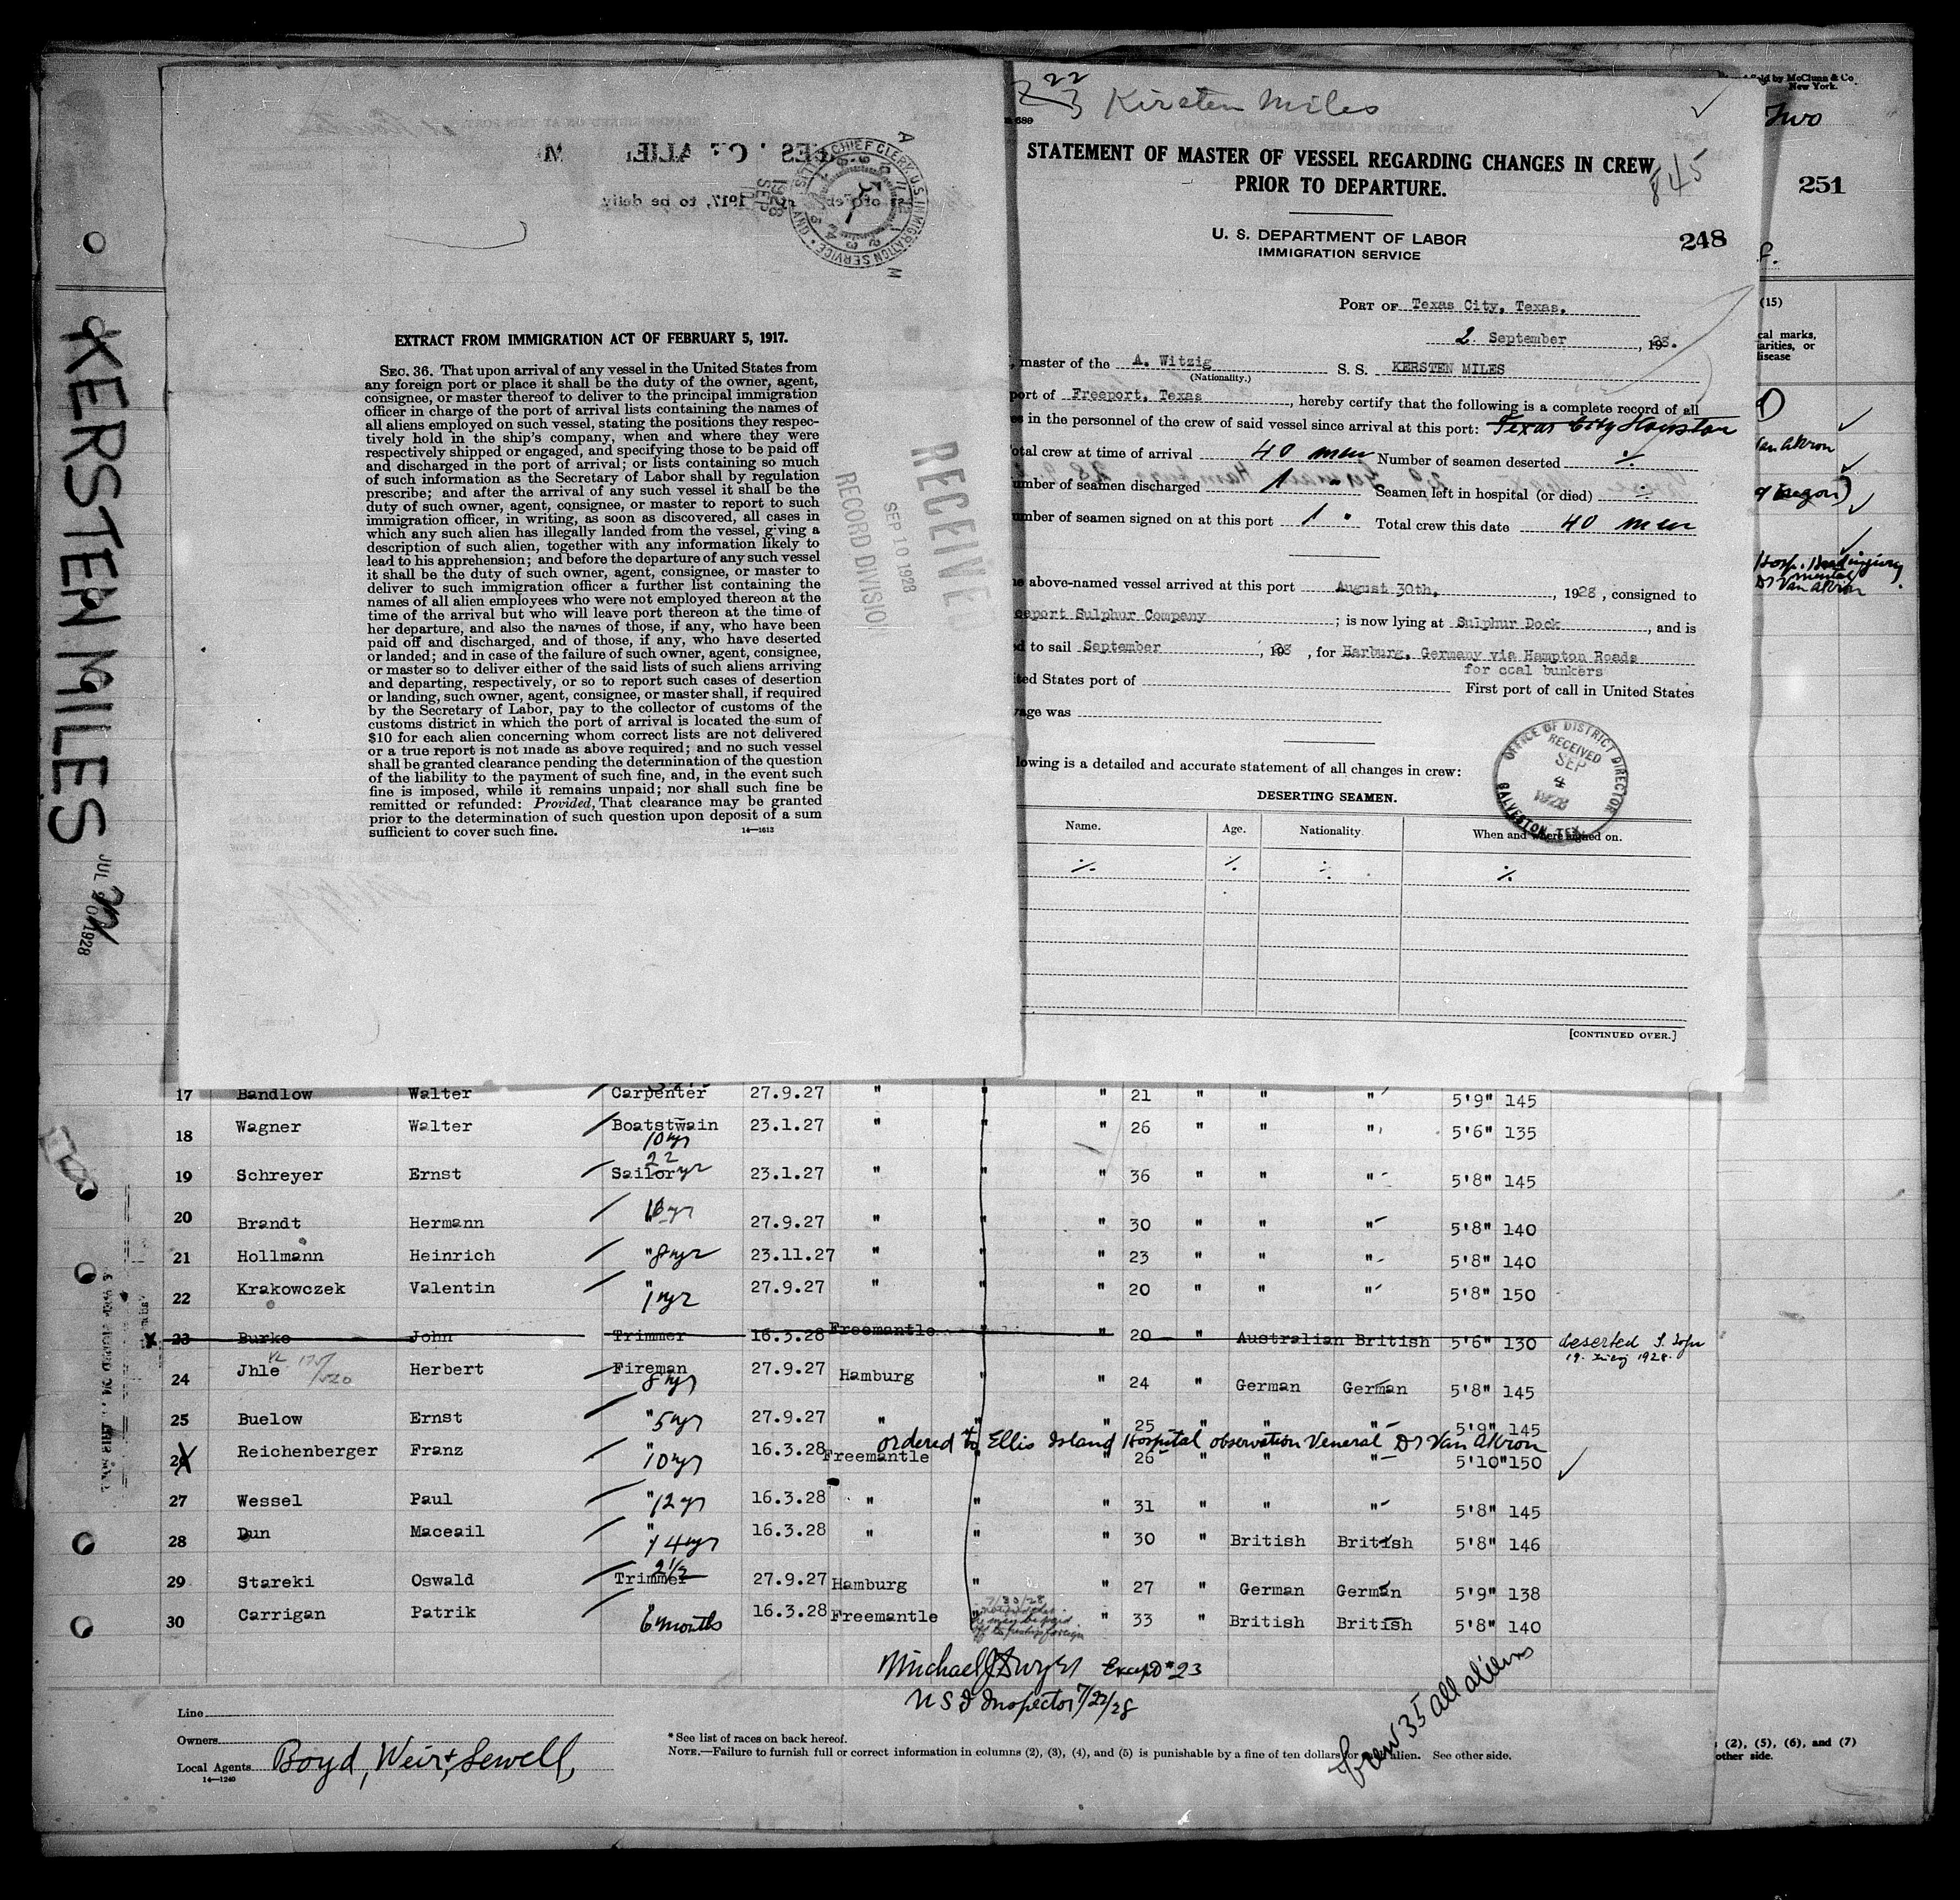 KERSTEN MILES
JUL 20 1928
CHIEF CLERK, U.S. IMMIGRATION SERVICE
1928 SEP 10
1917, to be deliv
EXTRACT FROM IMMIGRATION ACT OF FEBRUARY 5, 1917.
SEC. 36. That upon arrival of any vessel in the United States from
any foreign port or place it shall be the duty of the owner, agent,
consignee, or master thereof to deliver to the principal immigration
officer in charge of the port of arrival lists containing the names of
all aliens employed on such vessel, stating the positions they respec-
tively hold in the ship's company, when and where they were
respectively shipped or engaged, and specifying those to be paid off
and discharged in the port of arrival; or lists containing so much
of such information as the Secretary of Labor shall by regulation
prescribe; and after the arrival of any such vessel it shall be the
duty of such owner, agent, consignee, or master to report to such
immigration officer, in writing, as soon as discovered, all cases in
which any such alien has illegally landed from the vessel, giving a
description of such alien, together with any information likely to
lead to his apprehension; and before the departure of any such vessel
it shall be the duty of such owner, agent, consignee, or master to
deliver to such immigration officer a further list containing the
names of all alien employees who were not employed thereon at the
time of the arrival but who will leave port thereon at the time of
her departure, and also the names of those, if any, who have been
paid off and discharged, and of those, if any, who have deserted
or landed; and in case of the failure of such owner, agent, consignee,
or master so to deliver either of the said lists of such aliens arriving
and departing, respectively, or so to report such cases of desertion
or landing, such owner, agent, consignee, or master shall, if required
by the Secretary of Labor, pay to the collector of customs of the
customs district in which the port of arrival is located the sum of
$10 for each alien concerning whom correct lists are not delivered
or a true report is not made as above required; and no such vessel
shall be granted clearance pending the determination of the question
of the liability to the payment of such fine, and, in the event such
fine is imposed, while it remains unpaid; nor shall such fine be
remitted or refunded: Provided, That clearance may be granted
prior to the determination of such question upon deposit of a sum
sufficient to cover such fine. 14—1613
RECEIVE
SEP 10 1928
RECORD DIVISION
22
23 Kirsten Miles
689
STATEMENT OF MASTER OF VESSEL REGARDING CHANGES IN CREW
PRIOR TO DEPARTURE.
845
U. S. DEPARTMENT OF LABOR
IMMIGRATION SERVICE
248
PORT OF Texas City, Texas.
2 September, 1928.
, master of the A. Witzig S. S. KERSTEN MILES
(Nationality.)
port of Freeport, Texas, hereby certify that the following is a complete record of all
es in the personnel of the crew of said vessel since arrival at this port: Texas City Houston
otal crew at time of arrival 40 men Number of seamen deserted %
umber of seamen discharged 1 " Seamen left in hospital (or died) ÷
umber of seamen signed on at this port 1 " Total crew this date 40 men
e above-named vessel arrived at this port August 30th, 1928, consigned to
eeport Sulphur Company; is now lying at Sulphur Dock, and is
d to sail September, 1928, for Harburg, Germany via Hampton Roads
for coal bunkers
ted States port of First port of call in United States
yage was
OFFICE OF DISTRICT DIRECTOR
RECEIVED
SEP
4
1928
GALVESTON, TEX.
lowing is a detailed and accurate statement of all changes in crew:
DESERTING SEAMEN.
Name. Age. Nationality. When and where signed on.
% % % %
[CONTINUED OVER.]
sold by McClunn & Co
New York.
Two
251
(15)
cal marks,
iarities, or
disease
Van Akron
Hosp.
mental
Dr Van Akron
17 Bandlow Walter Carpenter 27.9.27 " " " 21 " " " 5'9" 145
18 Wagner Walter Boatstwain 23.1.27 " " " 26 " " " 5'6" 135
10 yr
22
19 Schreyer Ernst Sailor yr 23.1.27 " " " 36 " " " 5'8" 145
20 Brandt Hermann " yr 27.9.27 " " " 30 " " " 5'8" 140
21 Hollmann Heinrich " 8 yr 23.11.27 " " " 23 " " " 5'8" 140
22 Krakowczek Valentin " 1 yr 27.9.27 " " " 20 " " " 5'8" 150
x 23 Burke John Trimmer 16.3.28 Freemantle " " 20 Australian British 5'6" 130 deserted
19. 1928.
24 Jhle Herbert Fireman 27.9.27 Hamburg " " 24 " German German 5'8" 145
8 yr
25 Buelow Ernst " 5 yr 27.9.27 " " " 25 " " " 5'9" 145
ordered to Ellis Island Hospital observation Veneral Dr Van Akron
26 Reichenberger Franz " 10 yr 16.3.28 Freemantle " " 26 " " " 5'10" 150
27 Wessel Paul " 12 yr 16.3.28 " " " 31 " " " 5'8" 145
28 Dun Maceail " 4 yr 16.3.28 " " " 30 " British British 5'8" 146
2½
29 Stareki Oswald Trimmer 27.9.27 Hamburg " " 27 " German German 5'9" 138
30 Carrigan Patrik " 6 months 16.3.28 Freemantle " " 33 " British British 5'8" 140
7/30/28
Michael J Dwyer Except #23
U S I Inspector 7/22/28
Crew 35 all aliens
Line
Owners
Local Agents Boyd, Weir & Sewell,
14—1240
* See list of races on back hereof.
NOTE.—Failure to furnish full or correct information in columns (2), (3), (4), and (5) is punishable by a fine of ten dollars for each alien. See other side.
(2), (5), (6), and (7)
other side.